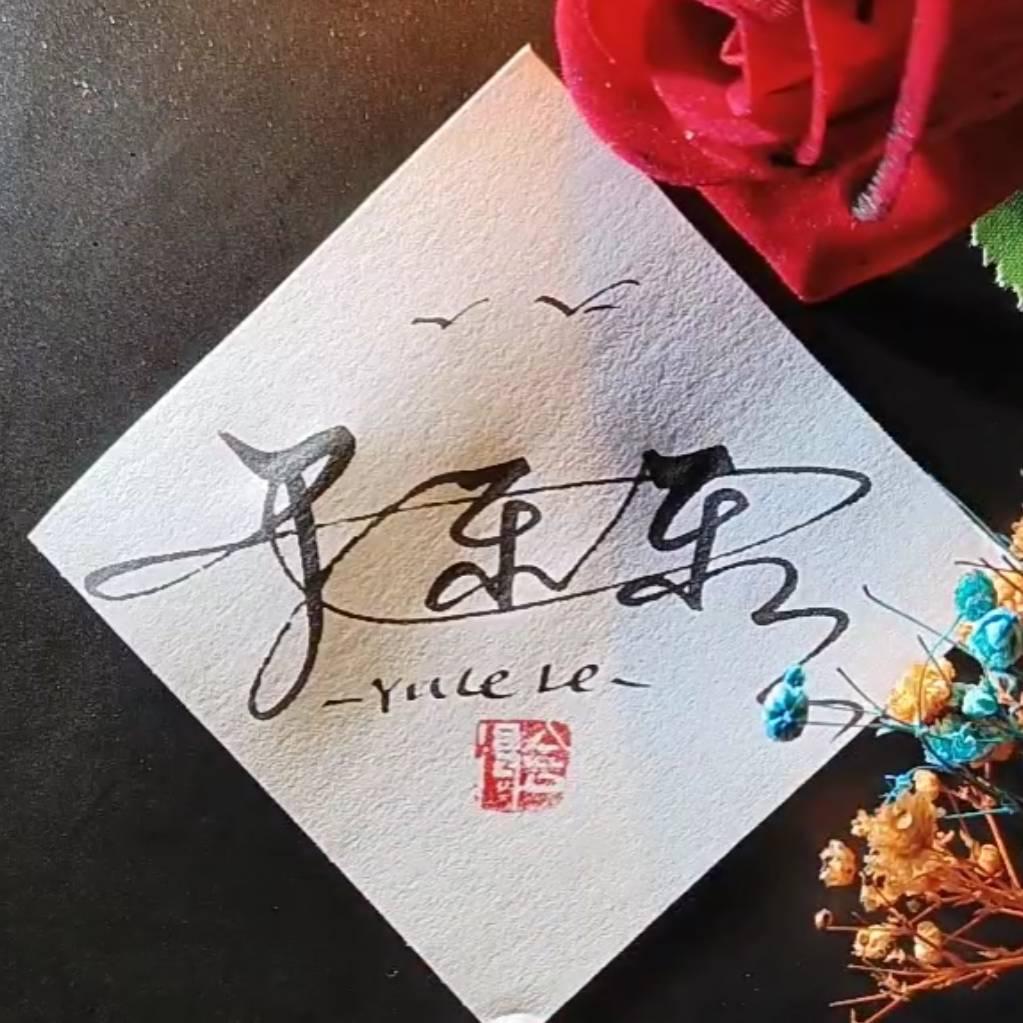 于乐乐
-YuLe Le-